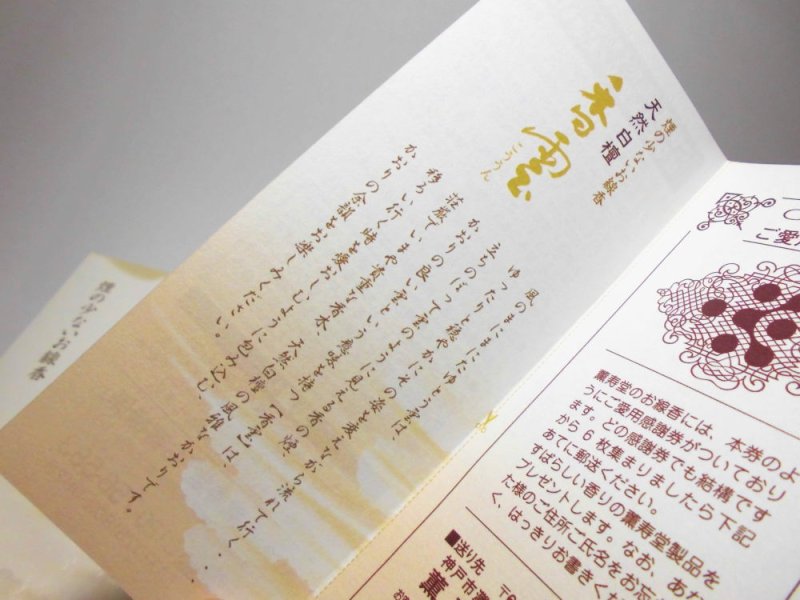 煙の少ないお線香
天然白檀
香雲
こううん
風のまにまにたゆとう雲は、
ゆったりと穏やかにその姿を変えながら流れて行く・・
立ちのぼって雲のように見える香の煙、
かおりの良い雲という意味を持つ「香雲」は、
荘厳でいまや貴重な香木、天然白檀の風雅なかおりです。
移ろい行く時を愛おしむように包み込む、
かおりの余韻をお楽しみください。
煙の少ないお線香
ご愛
薫寿堂のお線香には、本券のよ
うにご愛用感謝券がついており
ます。どの感謝券でも結構です
から6枚集まりましたら下記
あてに郵送ください。
すばらしい香りの薫寿堂製品を
プレゼントします。なお、あな
た様のご住所ご氏名をお忘
く、はっきりお書きくだ
■送り先 〒6
神戸市
薫